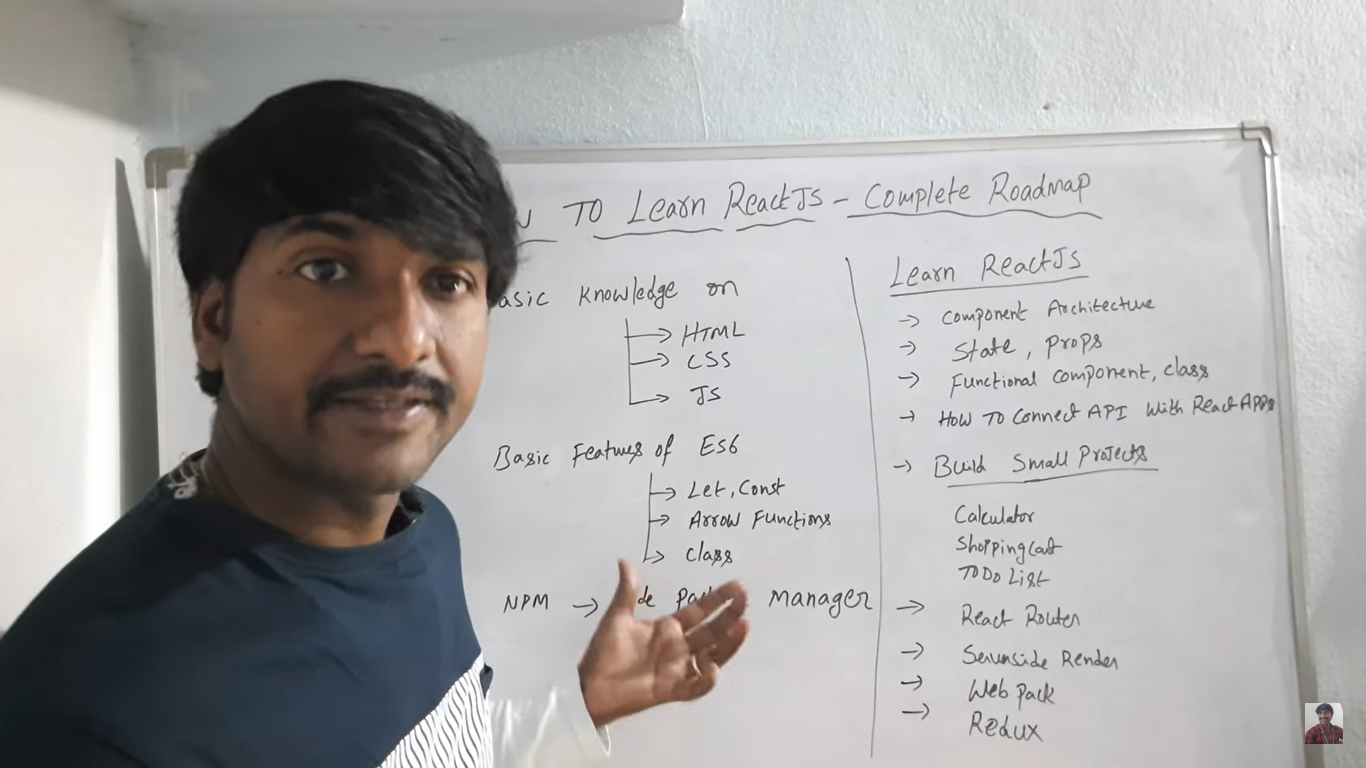 TO Learn ReactJs - Complete Roadmap
asic Knowledge on
→ HTML
→ CSS
→ JS
Basic Features of ES6
→ Let, Const
→ Arrow Functions
→ class
NPM → de manager
Learn ReactJs
→ Component Architecture
→ State, Props
→ Functional Component, class
→ How To Connect API With React APPs
→ Build Small Projects
Calculator
Shopping Cart
ToDo List
→ React Router
→ Serverside Render
→ Web pack
→ Redux